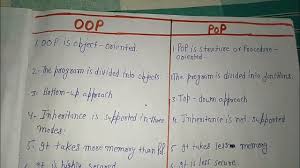 OOP
POP
1. OOP is object-oriented.
1. POP is structure or Procedure-
oriented
2. The program is divided into objects
2. The program is divided into functions.
3. Bottom-up approach
3. Top-down approach
4. Inheritance is supported in three
modes
4. Inheritance is not supported
5. It takes more memory than
5. It takes less memory
6. It is highly secured
6. It is less secure